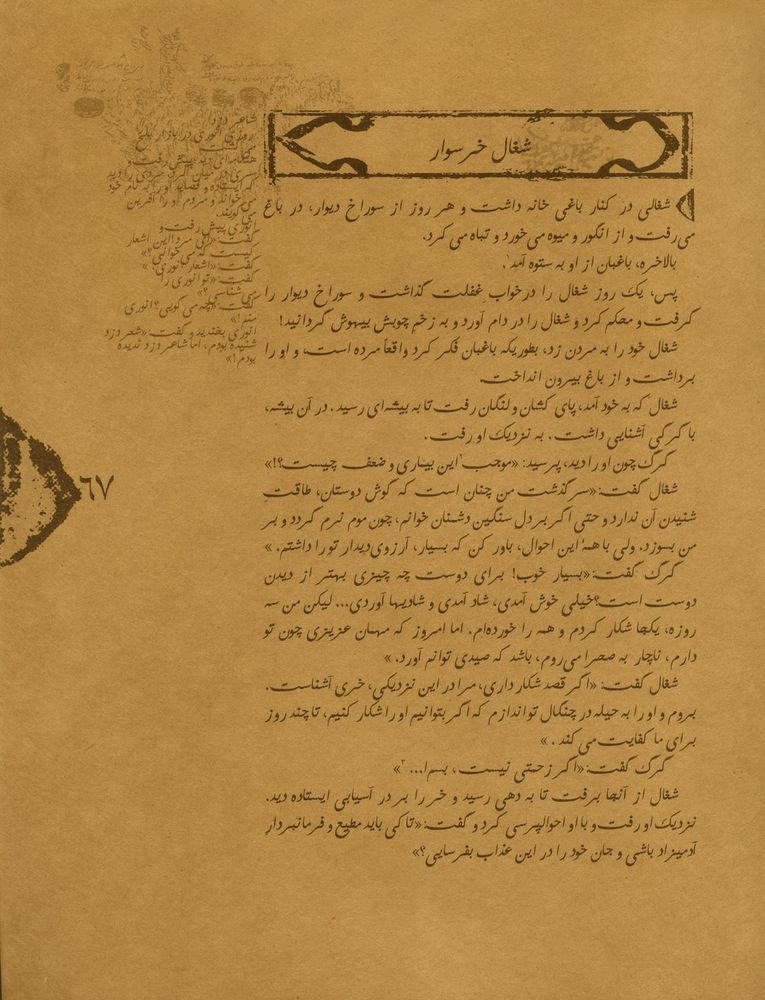 شغال خرسوار
شغالی در کنار باغی خانه داشت و هر روز از سوراخ دیوار، در باغ
می‌رفت و از انگور و میوه می‌خورد و تباه می کرد.
بالاخره، باغبان از او به ستوه آمد۱.
پس، یک روز شغال را درخواب غفلت گذاشت و سوراخ دیوار را
گرفت و محکم کرد و شغال را در دام آورد و به زخم چوبش بیهوش گردانید!
شغال خود را به مردن زد، بطوریکه باغبان فکر کرد واقعاً مرده است، و او را
برداشت و از باغ بیرون انداخت.
شغال که به خود آمد، پای کشان و لنگان رفت تا به بیشه‌ای رسید. در آن بیشه،
با گرگی آشنایی داشت. به نزدیک او رفت.
گرگ چون او را دید، پرسید: «موجب۲ این بیماری و ضعف چیست؟!»
شغال گفت: «سرگذشت من چنان است که گوش دوستان، طاقت
شنیدن آن ندارد و حتی اگر بر دل سنگین دشمنان خوانم، چون موم نرم گردد و بر
من بسوزد. ولی با همهٔ این احوال، باور کن که بسیار، آرزوی دیدار تو را داشتم.»
گرگ گفت: «بسیار خوب! برای دوست چه چیزی بهتر از دیدن
دوست است؟ خیلی خوش آمدی، شاد آمدی و شادیها آوردی... لیکن من سه
روزه، یکجا شکار کردم و همه را خورده‌ام. اما امروز که مهمان عزیزی چون تو
دارم، ناچار به صحرا می‌روم، باشد که صیدی توانم آورد.»
شغال گفت: «اگر قصد شکار داری، مرا در این نزدیکی، خری آشناست.
بروم و او را به حیله در چنگال تو اندازم که اگر بتوانیم او را شکار کنیم، تا چند روز
برای ما کفایت می کند.»
گرگ گفت: «اگر زحمتی نیست، بسم‌ا...۳»
شغال از آنجا برفت تا به دهی رسید و خر را بر در آسیابی ایستاده دید.
نزدیک او رفت و با او احوالپرسی کرد و گفت: «تا کی باید مطیع و فرمانبردار
آدمیزاد باشی و جان خود را در این عذاب بفرسایی؟»
شاعر دزد!
روزی انوری در بازار بلخ
می‌گذشت.
هنگامه‌ای دید، پیش رفت و
سری در میان کرد. مردی را دید
که ایستاده و قصاید او را به نام خود
می‌خواند و مردم او را آفرین
می گویند.
انوری پیش رفت و
گفت: «ای مرد! این اشعار
کیست که می خوانی؟»
گفت: «اشعار انوری.»
گفت: «تو انوری را
می شناسی؟»
گفت: «چه می گویی؟ انوری
منم!»
انوری بخندید و گفت: «شعر دزد
شنیده بودم، اما شاعر دزد ندیده
بودم!»
۶۷